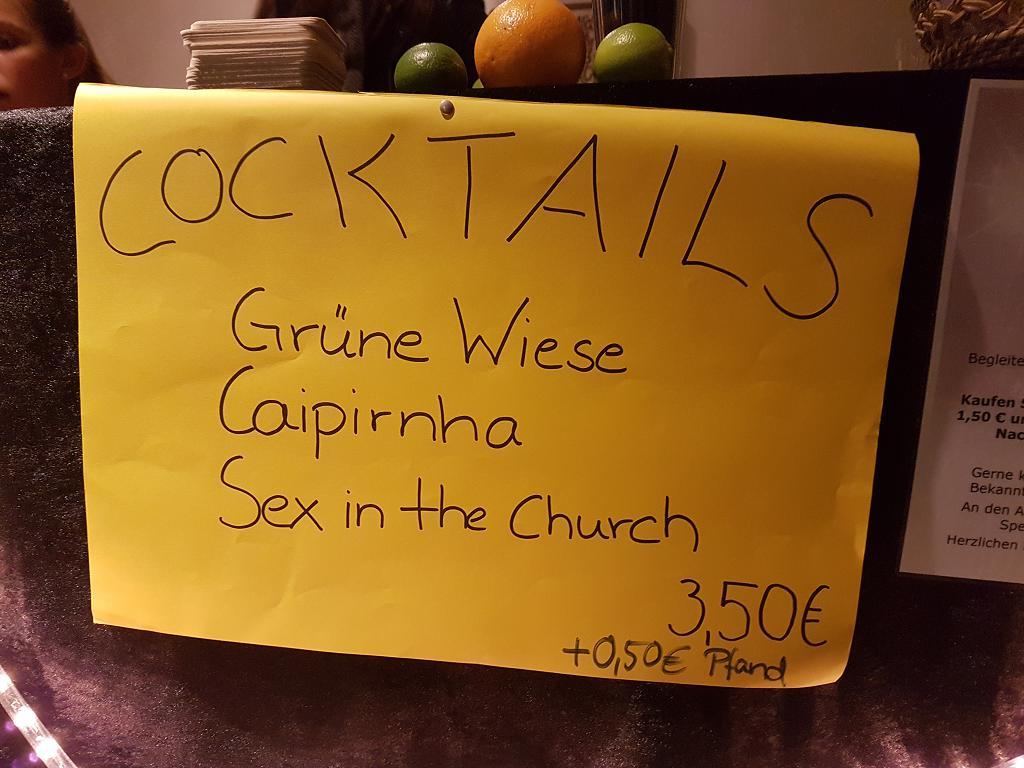 COCKTAILS
Grüne Wiese
Caipirnha
Sex in the Church
3,50€
+0,50€ Pfand
Begleite
Kaufen S
1,50 € un
Nac
Gerne k
Bekannt
An den A
Spe
Herzlichen